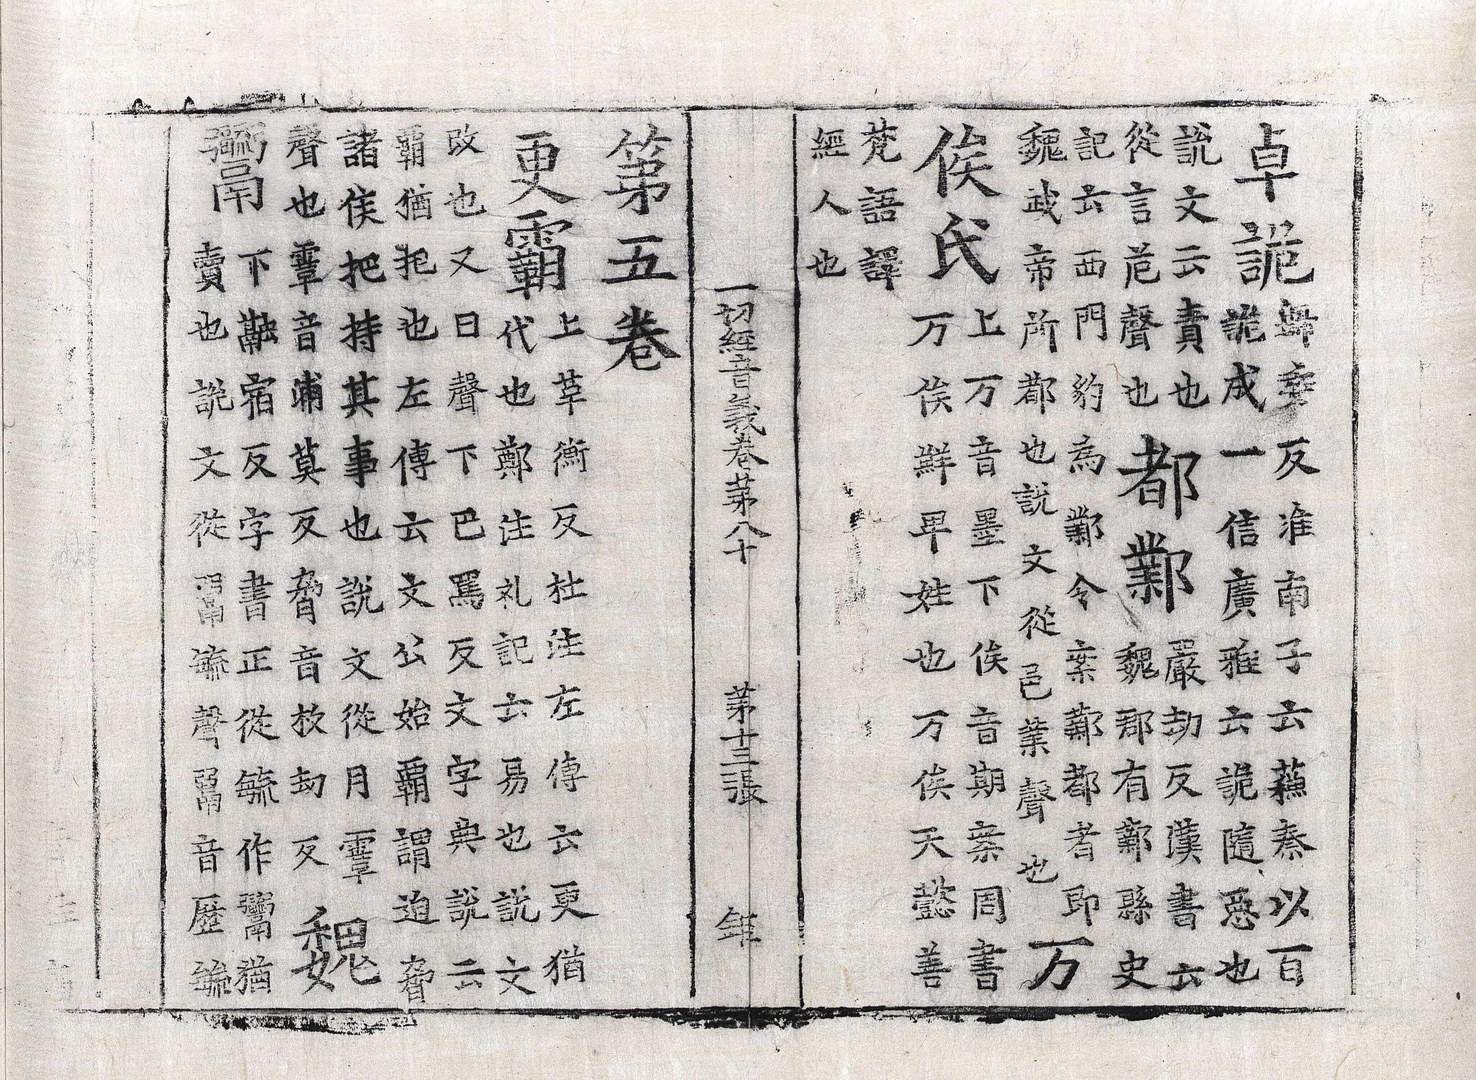 卓詭歸委反淮南子云蘓秦以百
詭成一信廣雅云詭隨惡也
說文云責也
從言危聲也都鄴嚴刼反漢書云
魏郡有鄴縣史
記云西門豹為鄴令案鄴都者即
魏武帝所都也說文從邑業聲也万
俟氏上万音墨下俟音期案周書
万俟鮮卑姓也万俟天懿善
梵語譯
經人也
一切經音義卷苐八十 苐十三張
第五卷
更霸上革衡反杜注左傳云更猶
代也鄭注礼記云易也說文
改也又曰聲下巴罵反文字典說云
霸猶把也左傳云文公始霸謂迫脅
諸侯把持其事也說文從月䨣
聲也䨣音浦莫反脅音杴刼反魏
鬻下融宿反字書正從毓作鬻猶
賣也說文從䰜毓聲䰜音歷毓